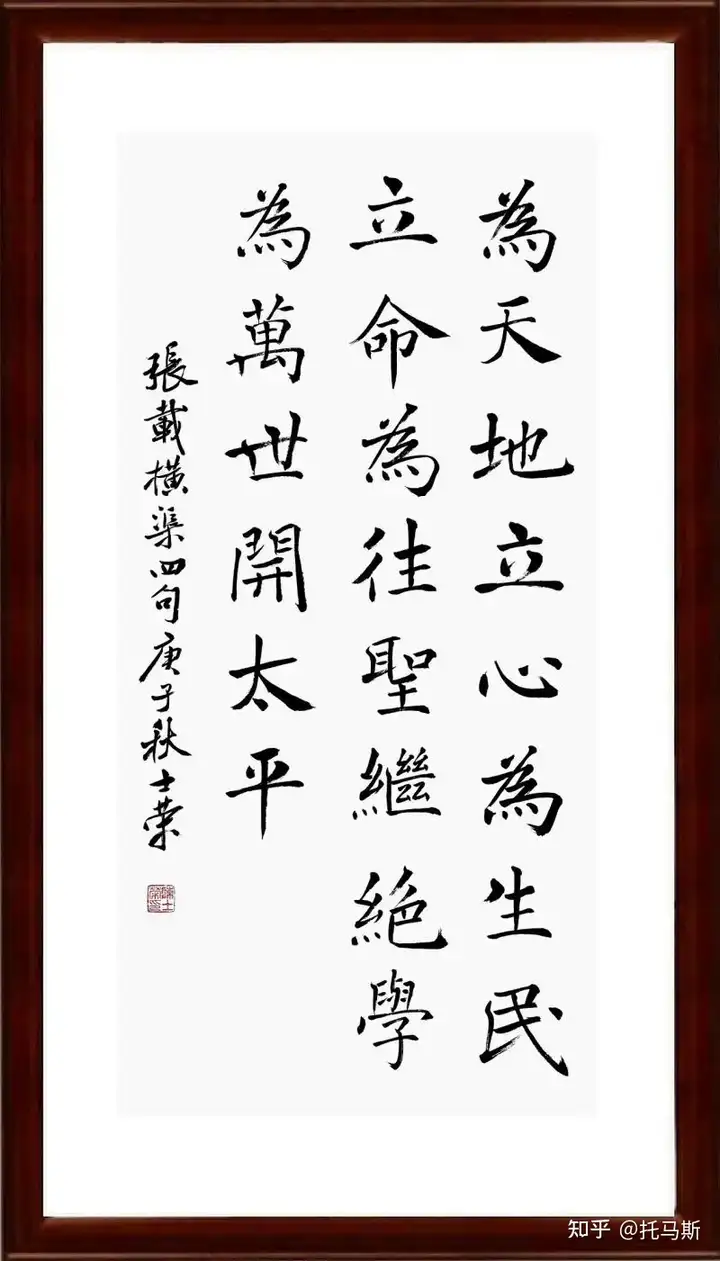 為天地立心為生民
立命為往聖繼絕學
為萬世開太平
張載橫渠四句庚子秋士榮
知乎 @托马斯